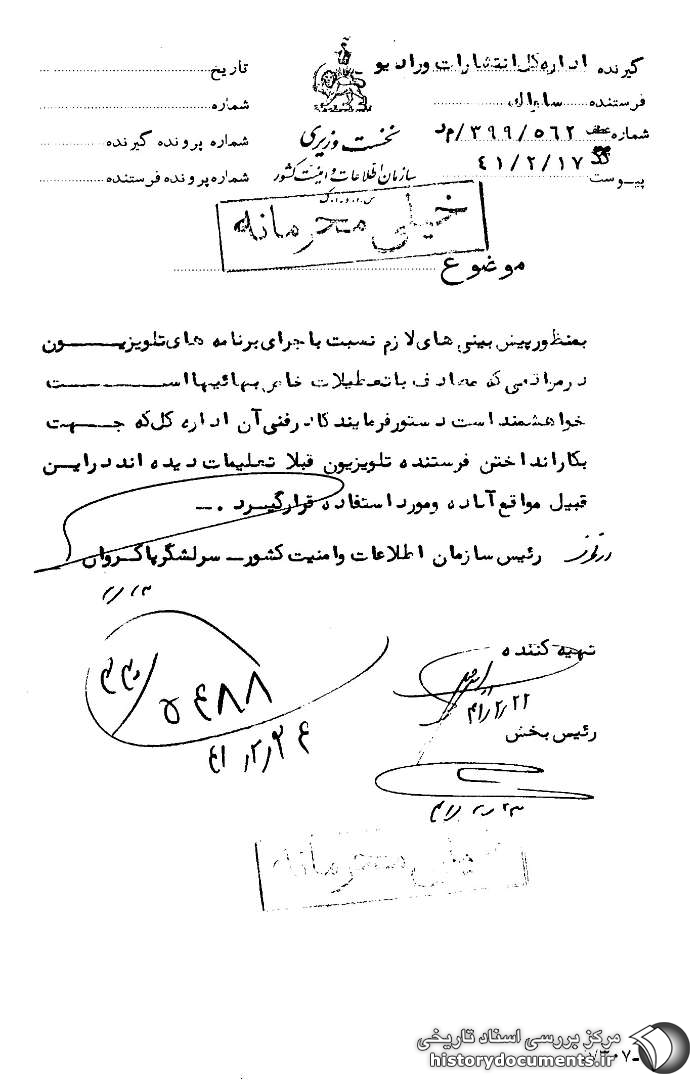 گیرنده اداره کل انتشارات ورادیو
فرستنده ساواک
شماره عطف ۵۶۲/۳۹۹/م د
۴۱/۲/۱۷
پیوست
نخست وزیری
سازمان اطلاعات و امنیت کشور
تاریخ
شماره
شماره پرونده گیرنده
شماره پرونده فرستنده
خیلی محرمانه
موضوع
بمنظور پیش بینی های لازم نسبت باجرای برنامه های تلویزیون
در مواقعی که مصادف با تعطیلات خاص بهائیها است
خواهشمند است دستور فرمایند کادر فنی آن اداره کل که جهت
بکار انداختن فرستنده تلویزیون قبلا تعلیمات دیده اند در این
قبیل مواقع آماده ومورد استفاده قرار گیرد .ــ
رئیس سازمان اطلاعات وامنیت کشور ــ سرلشگر پاکروان
تهیه کننده
۴۱/۲/۲۲
رئیس بخش
۵۴۸۸
۴۱/۲/۲۴
خیلی محرمانه
مرکز بررسی اسناد تاریخی
historydocuments.ir